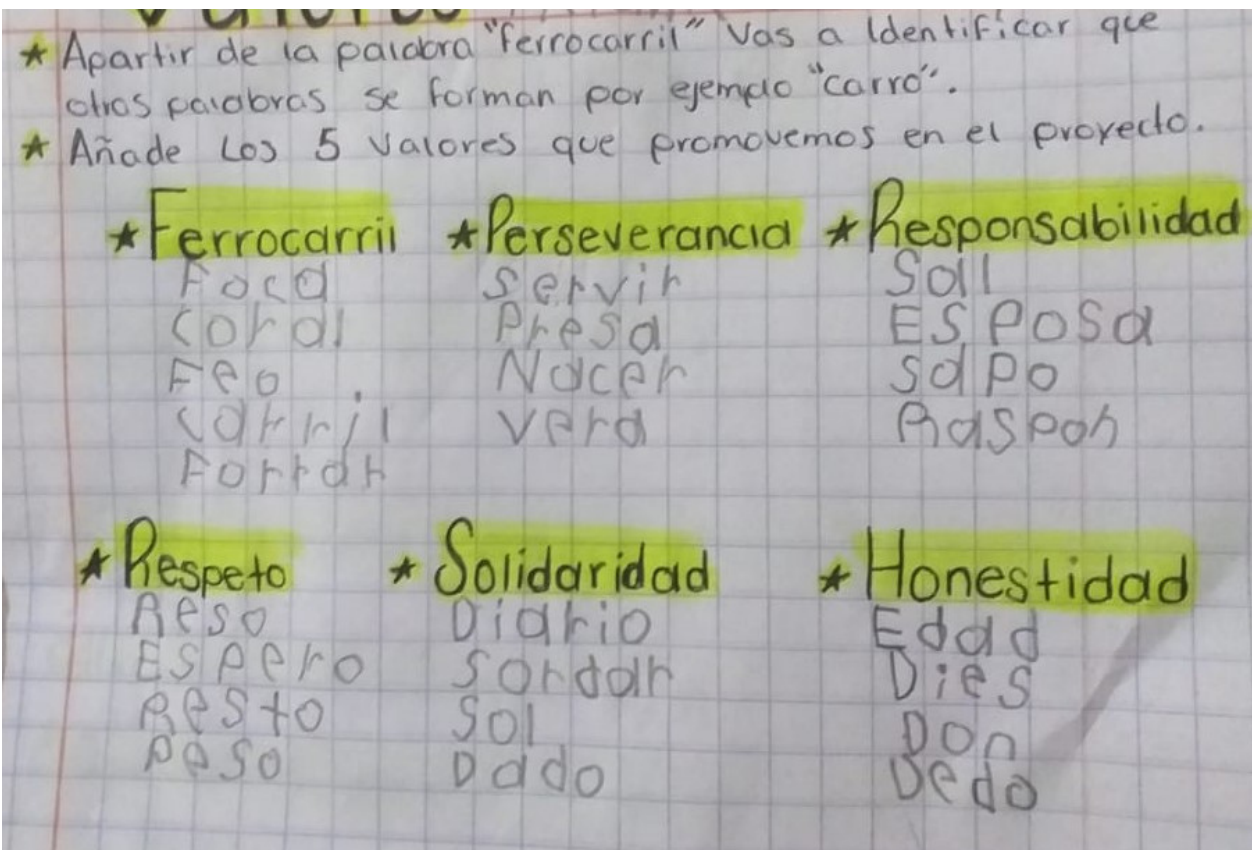 ★ Apartir de la palabra "ferrocarril" Vas a Identificar que
otras palabras se forman por ejemplo "carro".
★ Añade Los 5 Valores que promovemos en el proyecto.
★ Ferrocarril
Foca
Coral
Feo
Carril
Forrar
★ Perseverancia
Servir
Presa
Nacer
Vera
★ Responsabilidad
Sall
Esposa
Sapo
Raspon
★ Respeto
Reso
Espero
Resto
Peso
★ Solidaridad
Diario
Sordar
Sol
Dado
★ Honestidad
Edad
Dies
Don
Dedo